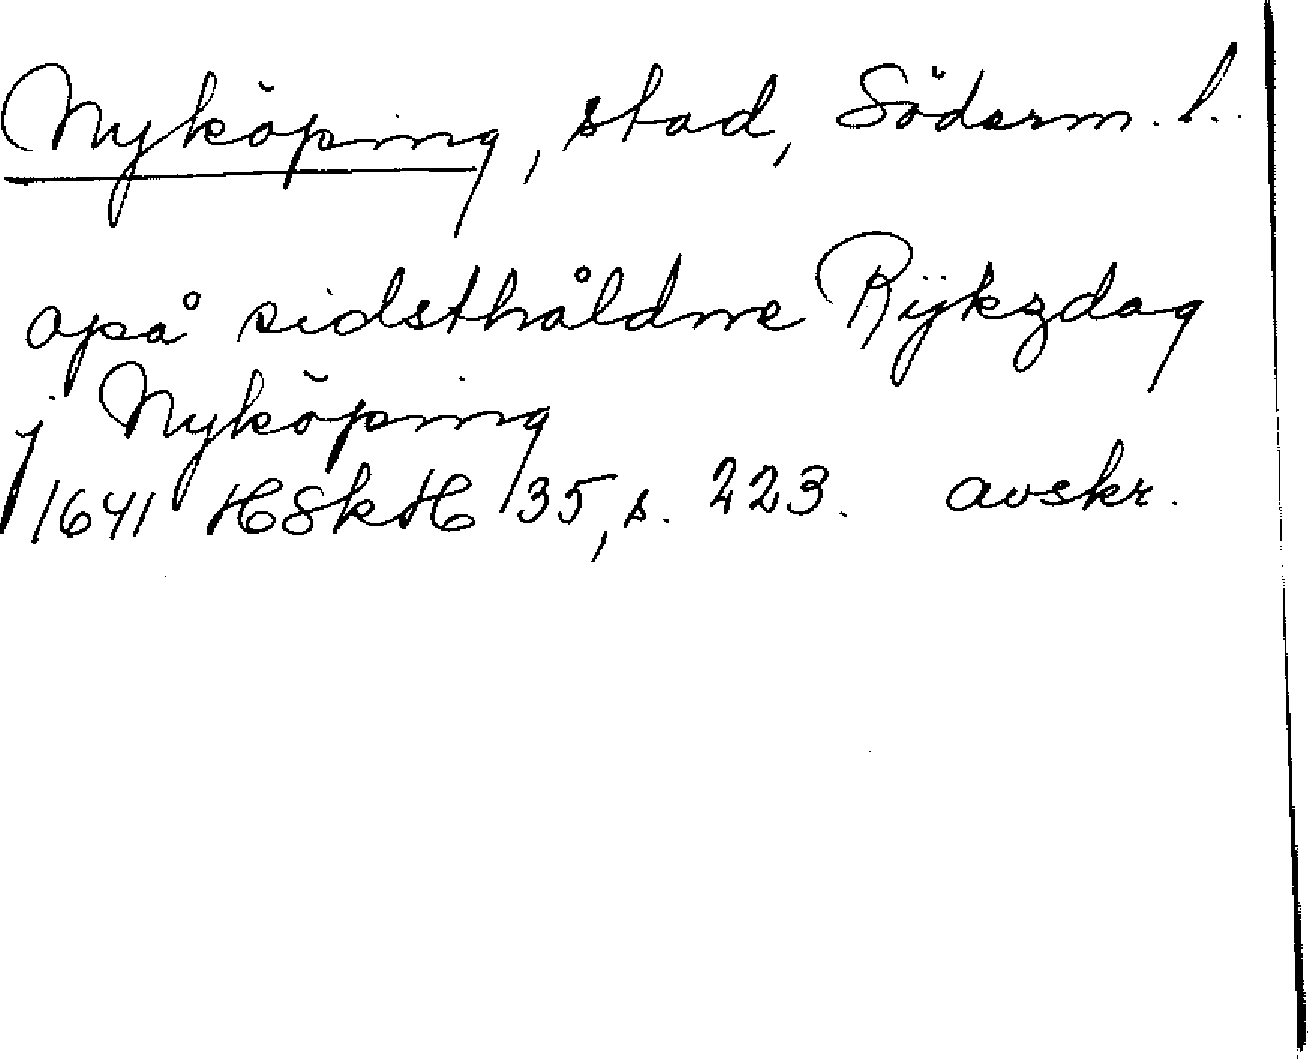 Nyköping, stad, Söderm. l.
opå sidsthåldne Rijkzdag
j Nyköping
1641 HSkH 35, s. 223. avskr.